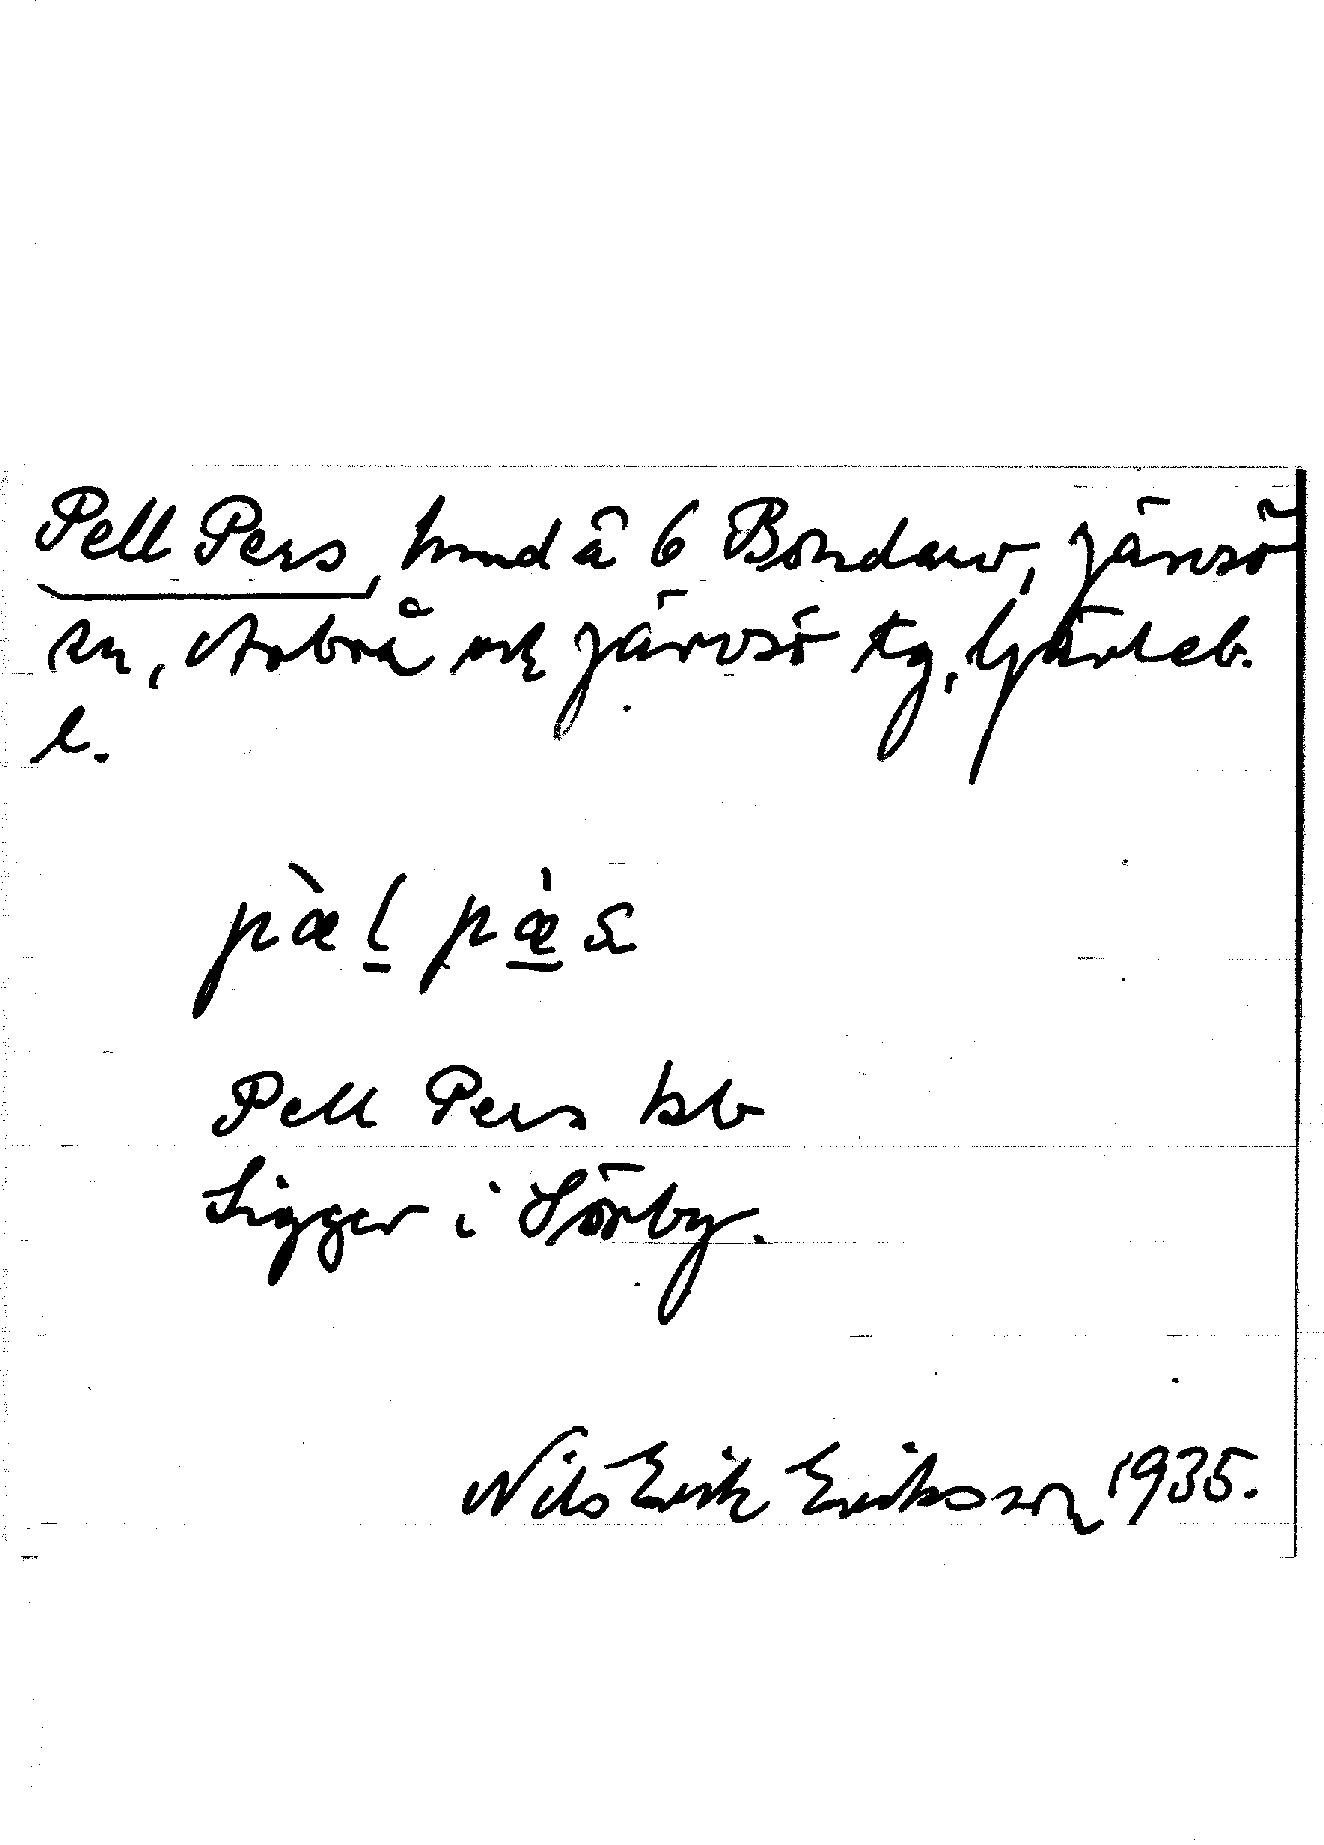 Pell Pers, hmd å 6 Bondarv, Järvsö
sn, Arbrå och Järvsö tg, Gävleb.
l.
pæ̀l pæ̀s
Pell Pers kb
Ligger i Sörby.
Nils Erik Eriksson 1935.